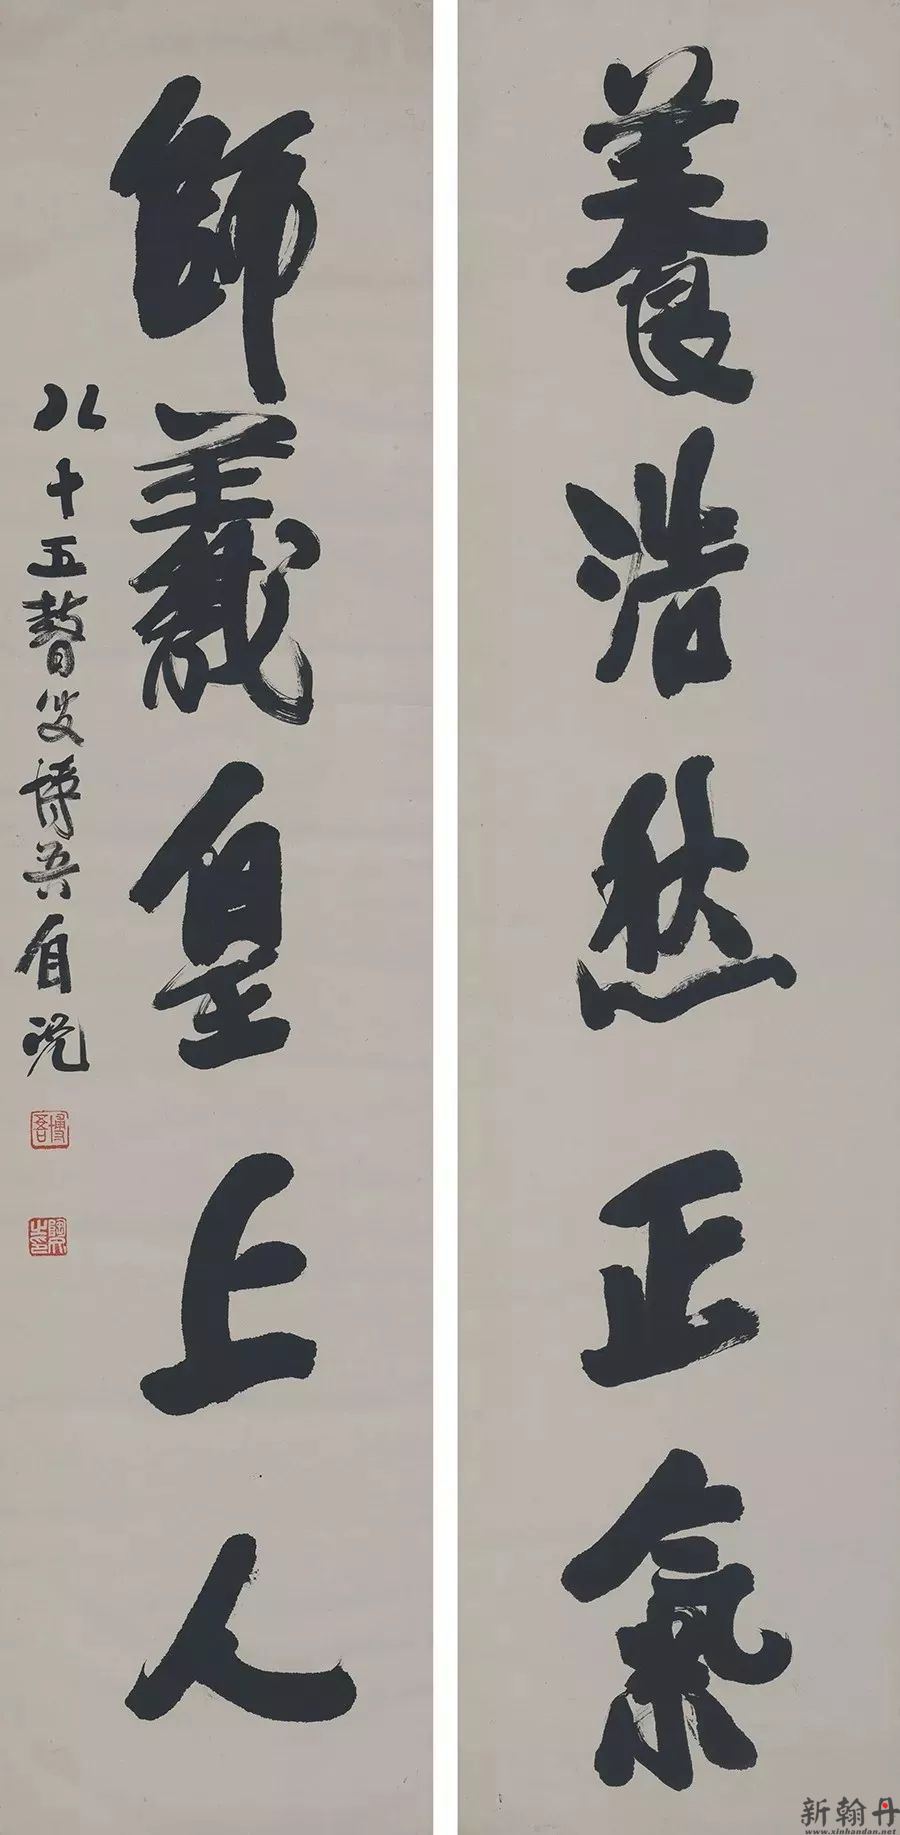 養浩然正氣
師羲皇上人
八十五瞽叟博吾自況
博吾
新翰丹
www.xinhandan.net